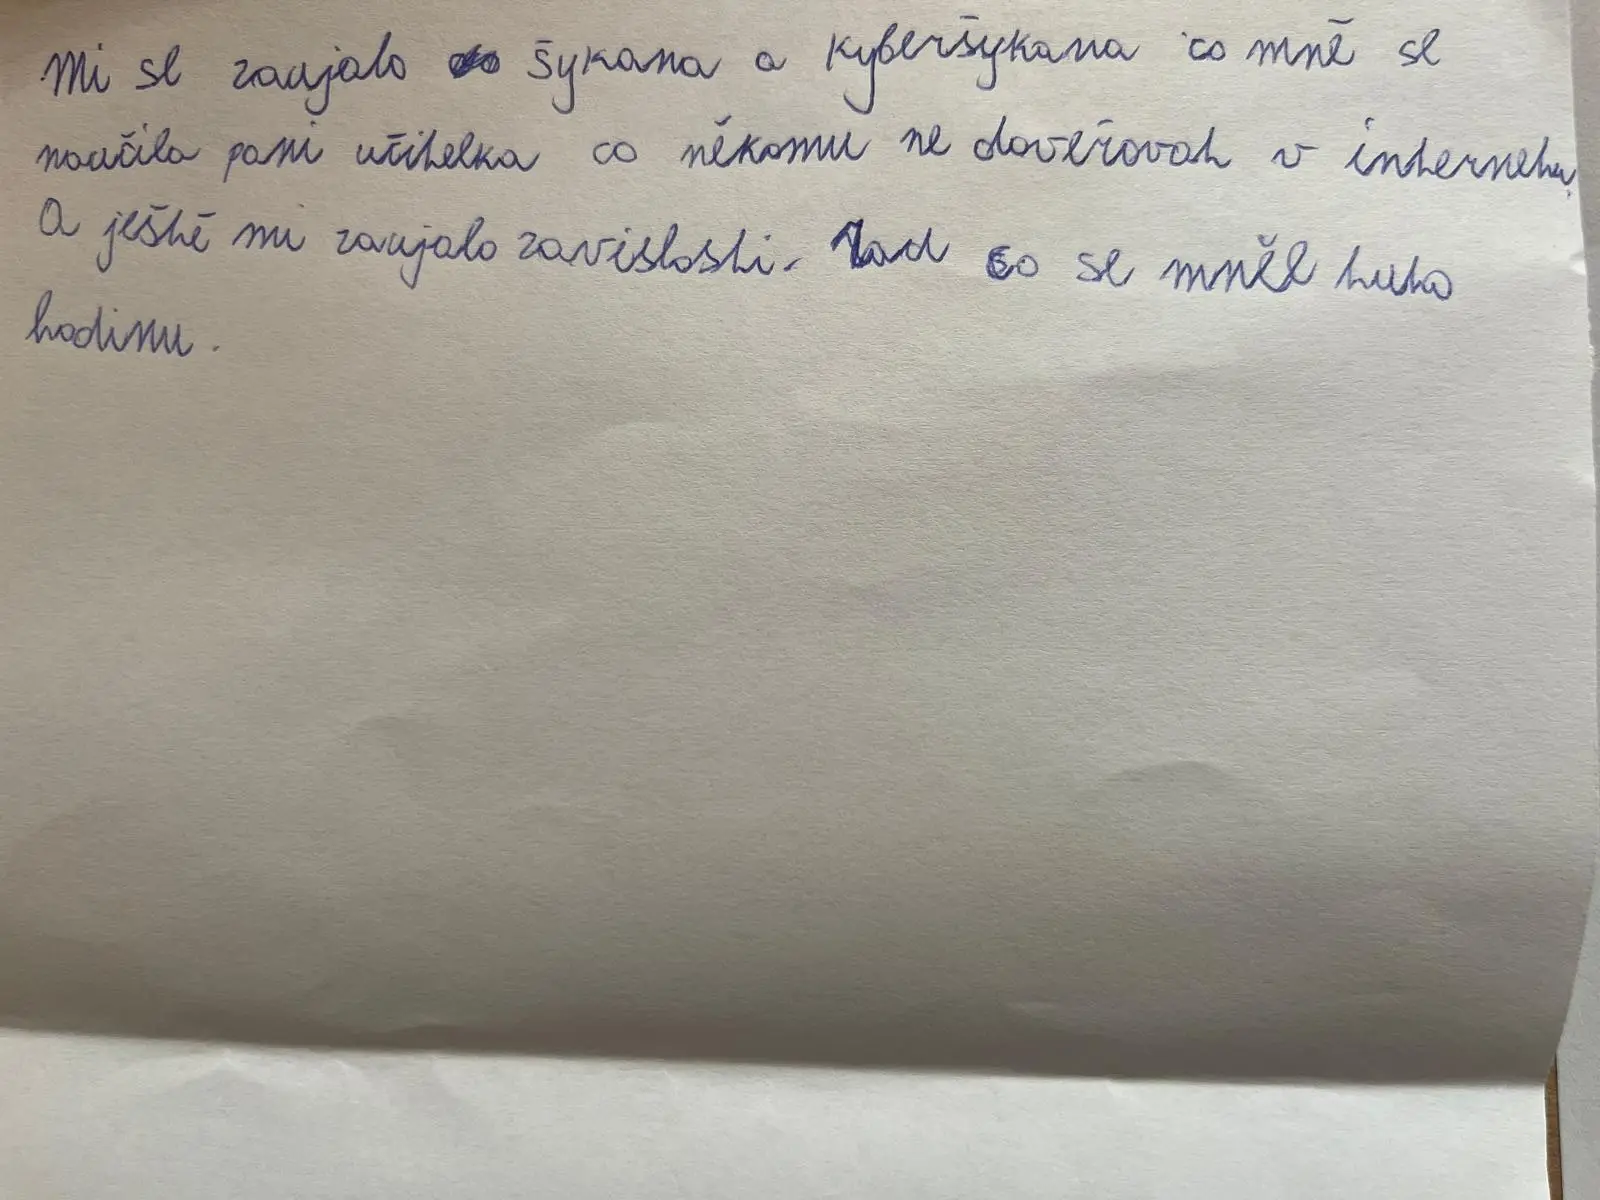 Mi se zaujalo šykana a kyberšykana co mně se
naučila pani učitelka co někomu ne dověřovat v internetu.
A ještě mi zaujalo zavislosti. Rad co se mněl tuto
hodinu.